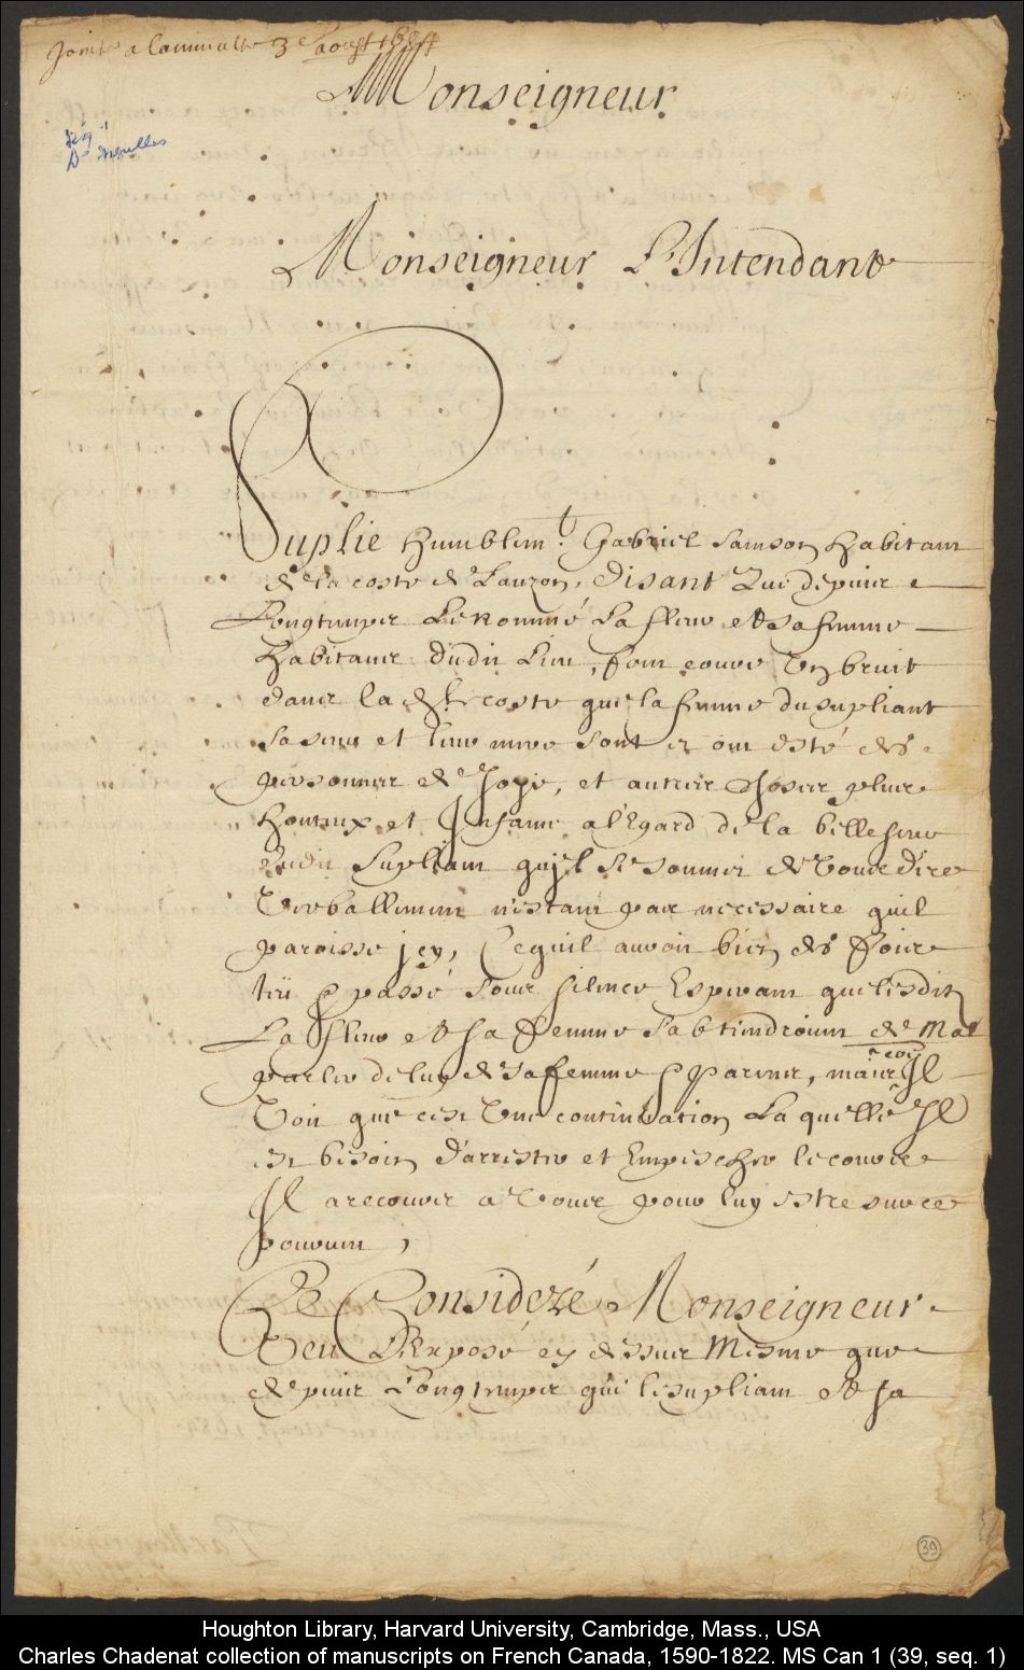 Joint a la minutte 3e aoust
Monseigneur
Sig
De Meulles
Monseigneur L'Intendant
Suplie humblemt. Gabriel Samson habitant
de la coste de Lauzon, disant Que depuis
Longtemps Le nommé Lafleur et sa femme
habitans dudit Lieu, font courre Un bruit
dans lad. coste que la femme du supliant
sa soeur et leur mere sont et ont esté des
personnes de Joye, et autres choses plus
honteux et Infame a l'Egard de la belle soeur
dudit Supliant qu'il se soumet de Vous dire
Verballement n'estant pas necessaire quil
paroisse icy, Ce quil auroit bien des fois
passé sous silence Esperant que lesdits
La fleur et sa femme s'abtiendroient de Mal
parler de luy de sa femme & Parens, mais Il
Voit que c'est Une continuation La quelle Il
est besoin d'arrester et Empescher le cours
Il a recours a Vous pour luy estre sur ce
pourveu,
Ce Consideré Monseigneur
Veu L'Exposé cy dessus Mesme que
depuis Longtemps que le supliant et sa
39
Houghton Library, Harvard University, Cambridge, Mass., USA
Charles Chadenat collection of manuscripts on French Canada, 1590-1822. MS Can 1 (39, seq. 1)